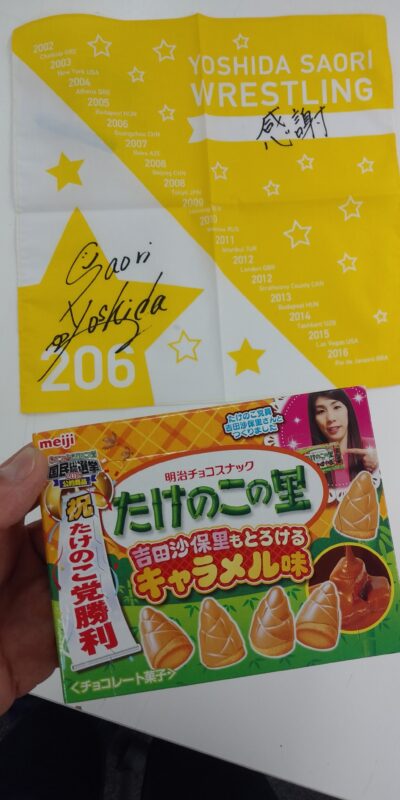 2002
Chalkidiki GRE
2003
New York USA
2004
Athens GRE
2005
Budapest HUN
2006
Guangzhou CHN
2007
Baku AZE
2008
Beijing CHN
2008
Tokyo JPN
2009
2010
Moscow RUS
2011
Istanbul TUR
2012
London GBR
2012
Strathcona County CAN
2013
Budapest HUN
2014
Tashkent UZB
2015
Las Vegas USA
2016
Rio de Janeiro BRA
YOSHIDA SAORI
WRESTLING
感謝
Saori
Yoshida
206
meiji
国民総選挙
公約商品
祝
たけのこ党勝利
たけのこ党員
吉田沙保里さんと
つくりました
明治チョコスナック
たけのこの里
吉田沙保里もとろける
キャラメル味
<チョコレート菓子>